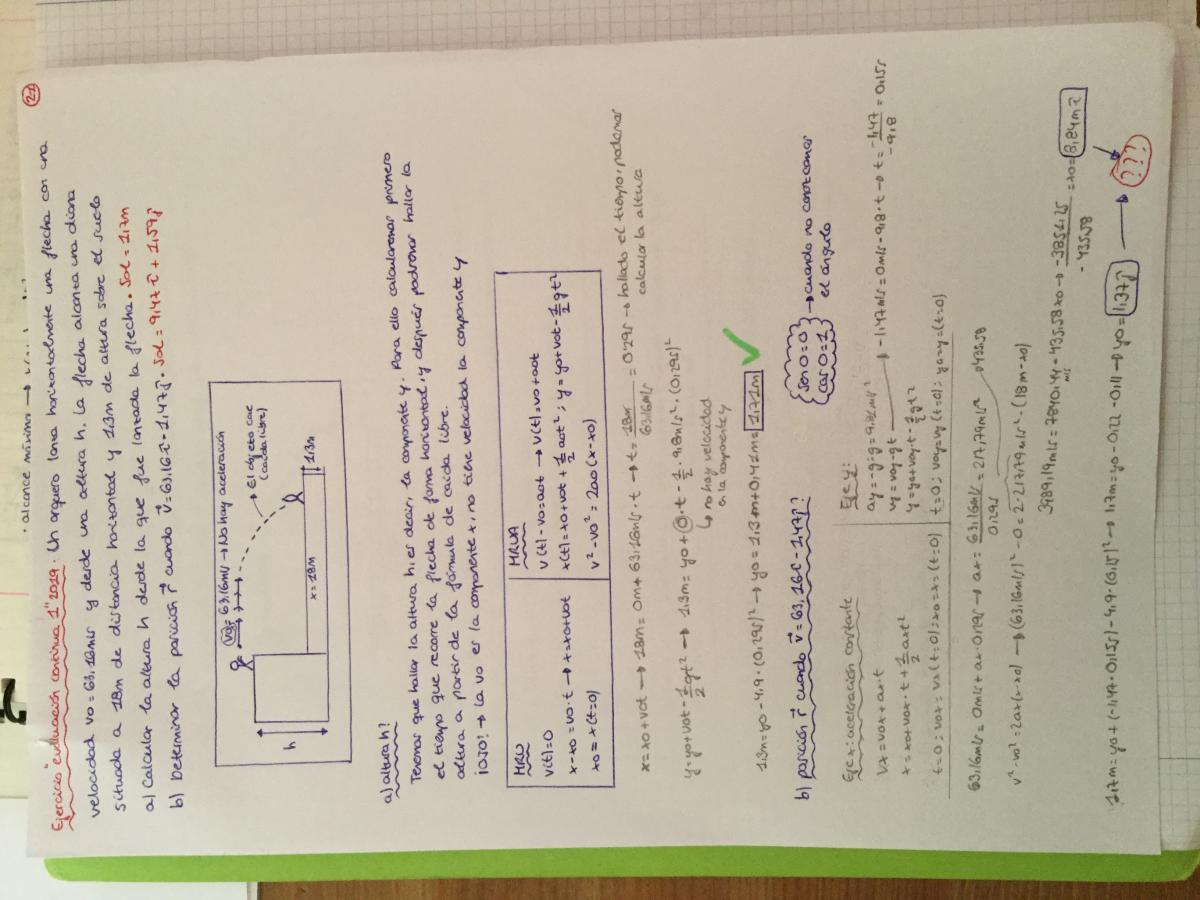 · alcance mínimo →
27
Ejercicio "evaluación continua 1" 2019. Un arquero lanza horizontalmente una flecha con una
velocidad v0 = 63,16m/s y desde una altura h. La flecha alcanza una diana
situada a 18m de distancia horizontal y 1,3m de altura sobre el suelo
a) Calcular la altura h desde la que fue lanzada la flecha. Sol = 1,7m
b) Determinar la posición r⃗ cuando v⃗ = 63,16i - 1,47j. Sol = 9,47i + 1,59j
v0 = 63,16m/s → No hay aceleración
El objeto cae
(caída libre)
h
x = 18m
1,3m
a) altura h?
Tenemos que hallar la altura h, es decir, la componente y. Para ello calcularemos primero
el tiempo que recorre la flecha de forma horizontal, y después podremos hallar la
altura a partir de la fórmula de caída libre.
¡OJO! → La v0 es la componente x, no tiene velocidad la componente y
MRU
v(t) = 0
x - x0 = v0 · t → x = x0 + v0t
x0 = x(t=0)
MRUA
v(t) - v0 = a0t → v(t) = v0 + a0t
x(t) = x0 + v0t + 1/2 a0t² ; y = y0 + v0t - 1/2 gt²
v² - v0² = 2a0(x - x0)
x = x0 + v0t → 18m = 0m + 63,16m/s · t → t = 18m / 63,16m/s = 0,29s → hallado el tiempo, podemos
calcular la altura
y = y0 + v0t - 1/2 gt² → 1,3m = y0 + 0 · t - 1/2 · 9,8m/s² · (0,29s)²
↳ no hay velocidad
en la componente y
1,3m = y0 - 4,9 · (0,29s)² → y0 = 1,3m + 0,41m = 1,71m ✓
b) posición r⃗ cuando v⃗ = 63,16i - 1,47j?
sen 0 = 0
cos 0 = 1
→ cuando no conozcamos
el ángulo
Eje x: aceleración constante
vx = v0x + ax · t
x = x0 + v0x · t + 1/2 axt²
t = 0 ; v0x = vx(t=0) ; x0 = x(t=0)
Eje y:
ay = -g ; g = 9,81m/s²
vy = v0y - gt → -1,47m/s = 0m/s - 9,8 · t → t = -1,47 / -9,8 = 0,15s
y = y0 + v0y · t - 1/2 gt²
t = 0 ; v0y = vy(t=0) ; y0 = y(t=0)
63,16m/s = 0m/s + ax · 0,29s → ax = 63,16m/s / 0,29s = 217,79m/s²
435,58
v² - v0² = 2ax(x - x0) → (63,16m/s)² - 0 = 2 · 217,79m/s² · (18m - x0)
3989,19m/s = 7840,44 m/s - 435,58x0 → -3851,25 / -435,58 = x0 = 8,84m i
1,7m = y0 + (-1,47 · 0,15s) - 4,9 · (0,15)² → 1,7m = y0 - 0,22 - 0,11 → y0 = 1,37j → ???